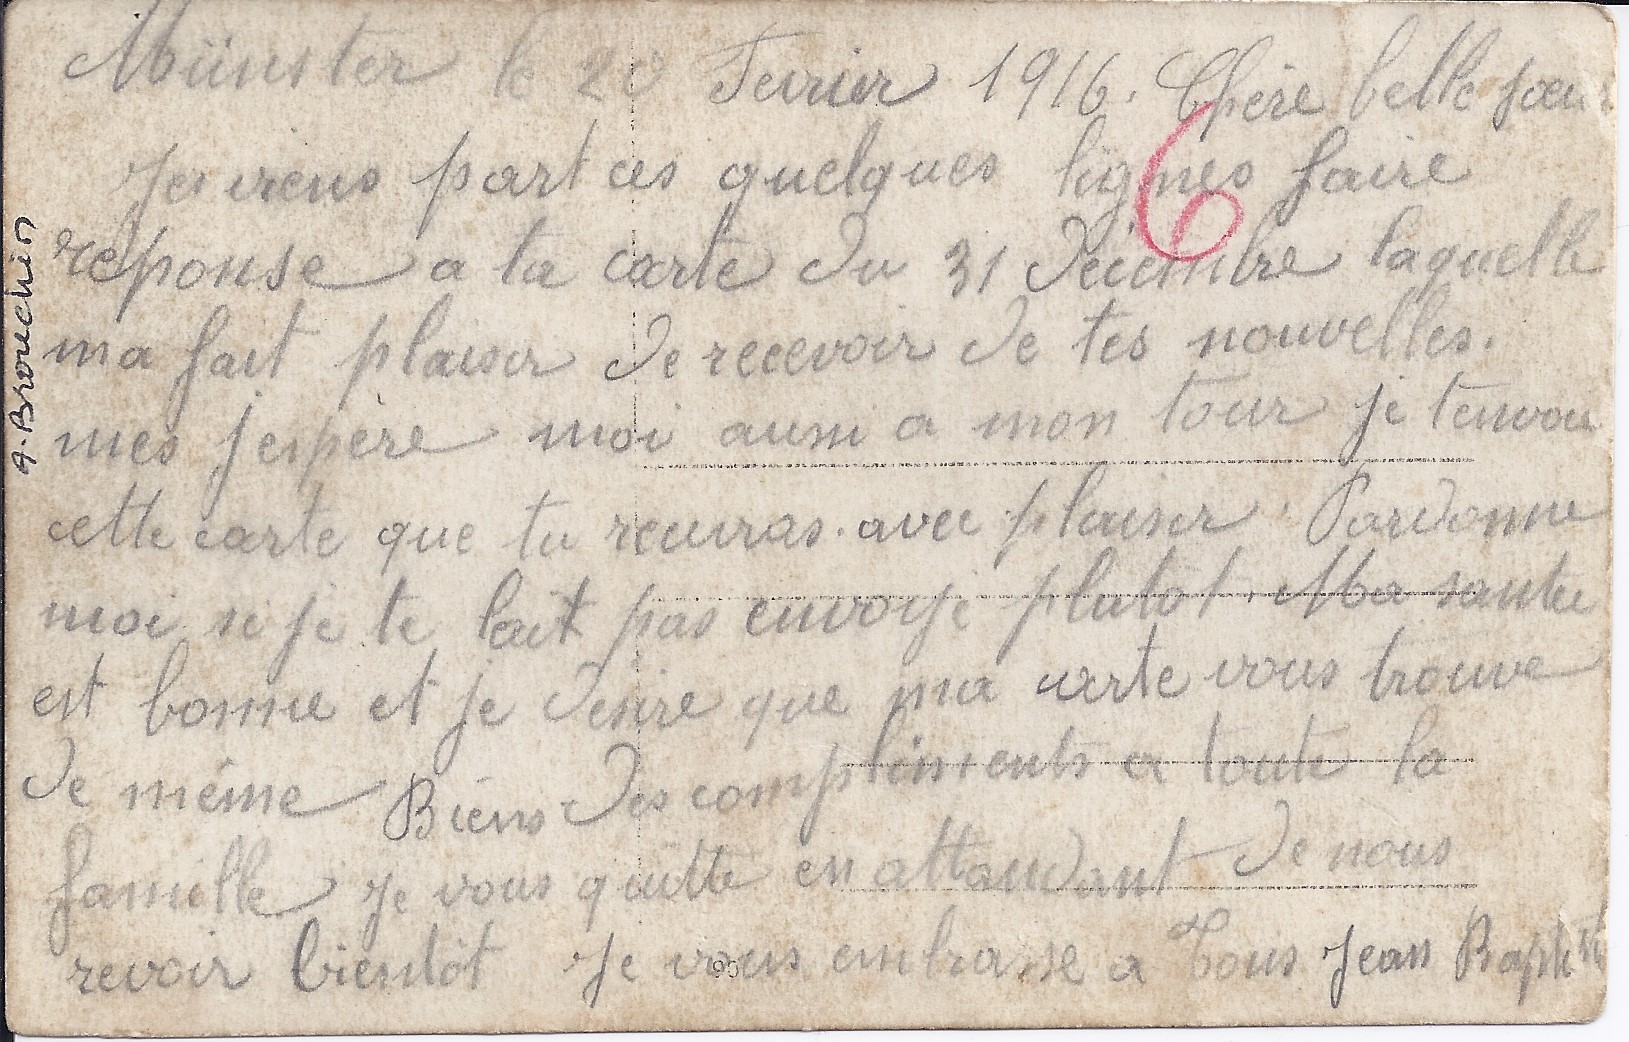 Münster le 20 Fevrier 1916. Chère belle sœur
Je viens part ces quelques lignes faire
reponse a ta carte du 31 Décembre laquelle
ma fait plaiser de recevoir de tes nouvelles.
mes jespère moi aussi a mon tour je tenvoie
cette carte que tu recevras. avec plaiser. Pardonne
moi si je te lait pas envoyé plutot. Ma santée
est bonne et je desire que ma carte vous trouve
de même Biens des compliments a toute la
famille Je vous quitte en attandant de nous
revoir bientôt Je vous embrasse a Tous Jean Baptiste
6